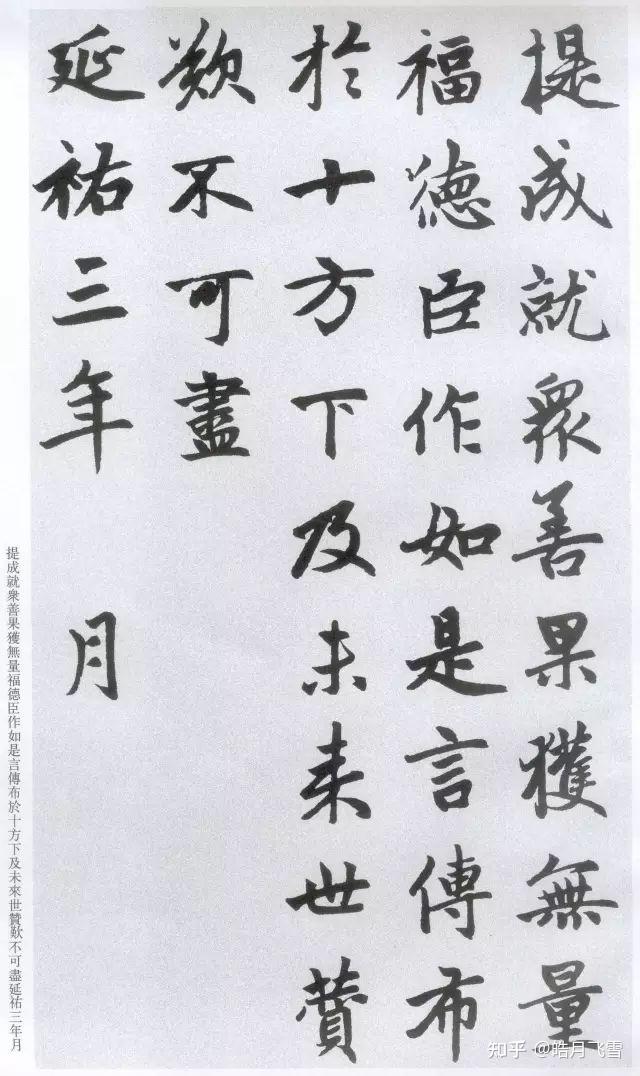 提成就衆善果獲無量
福德臣作如是言傳布
於十方下及未来世賛
歎不可盡
延祐三年 月
提成就衆善果獲無量福德臣作如是言傳布於十方下及未來世贊歎不可盡延祐三年月
知乎 @皓月飞雪